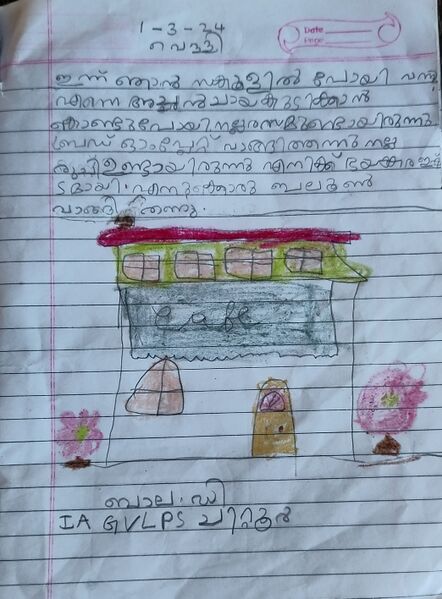 Date
Page
1-3-24
വെള്ളി
ഇന്ന് ഞാൻ സ്കൂളിൽ പോയി വന്നു
എന്നെ അച്ഛൻ ചായകുടിക്കാൻ
കൊണ്ടുപോയി.നല്ലരസമുണ്ടായിരുന്നു.
ബ്രഡ് ഓംപ്ലേറ്റ് വാങ്ങിത്തന്നു നല്ല
രുചിഉണ്ടായിരുന്നു എനിക്ക് ഭയങ്കര ഇഷ്
ടമായി. എനുക്കൊരു ബലൂൺ
വാങ്ങി തന്നു.
cafe
ബാല.ഡി
IA GVLPS ചിറ്റൂർ